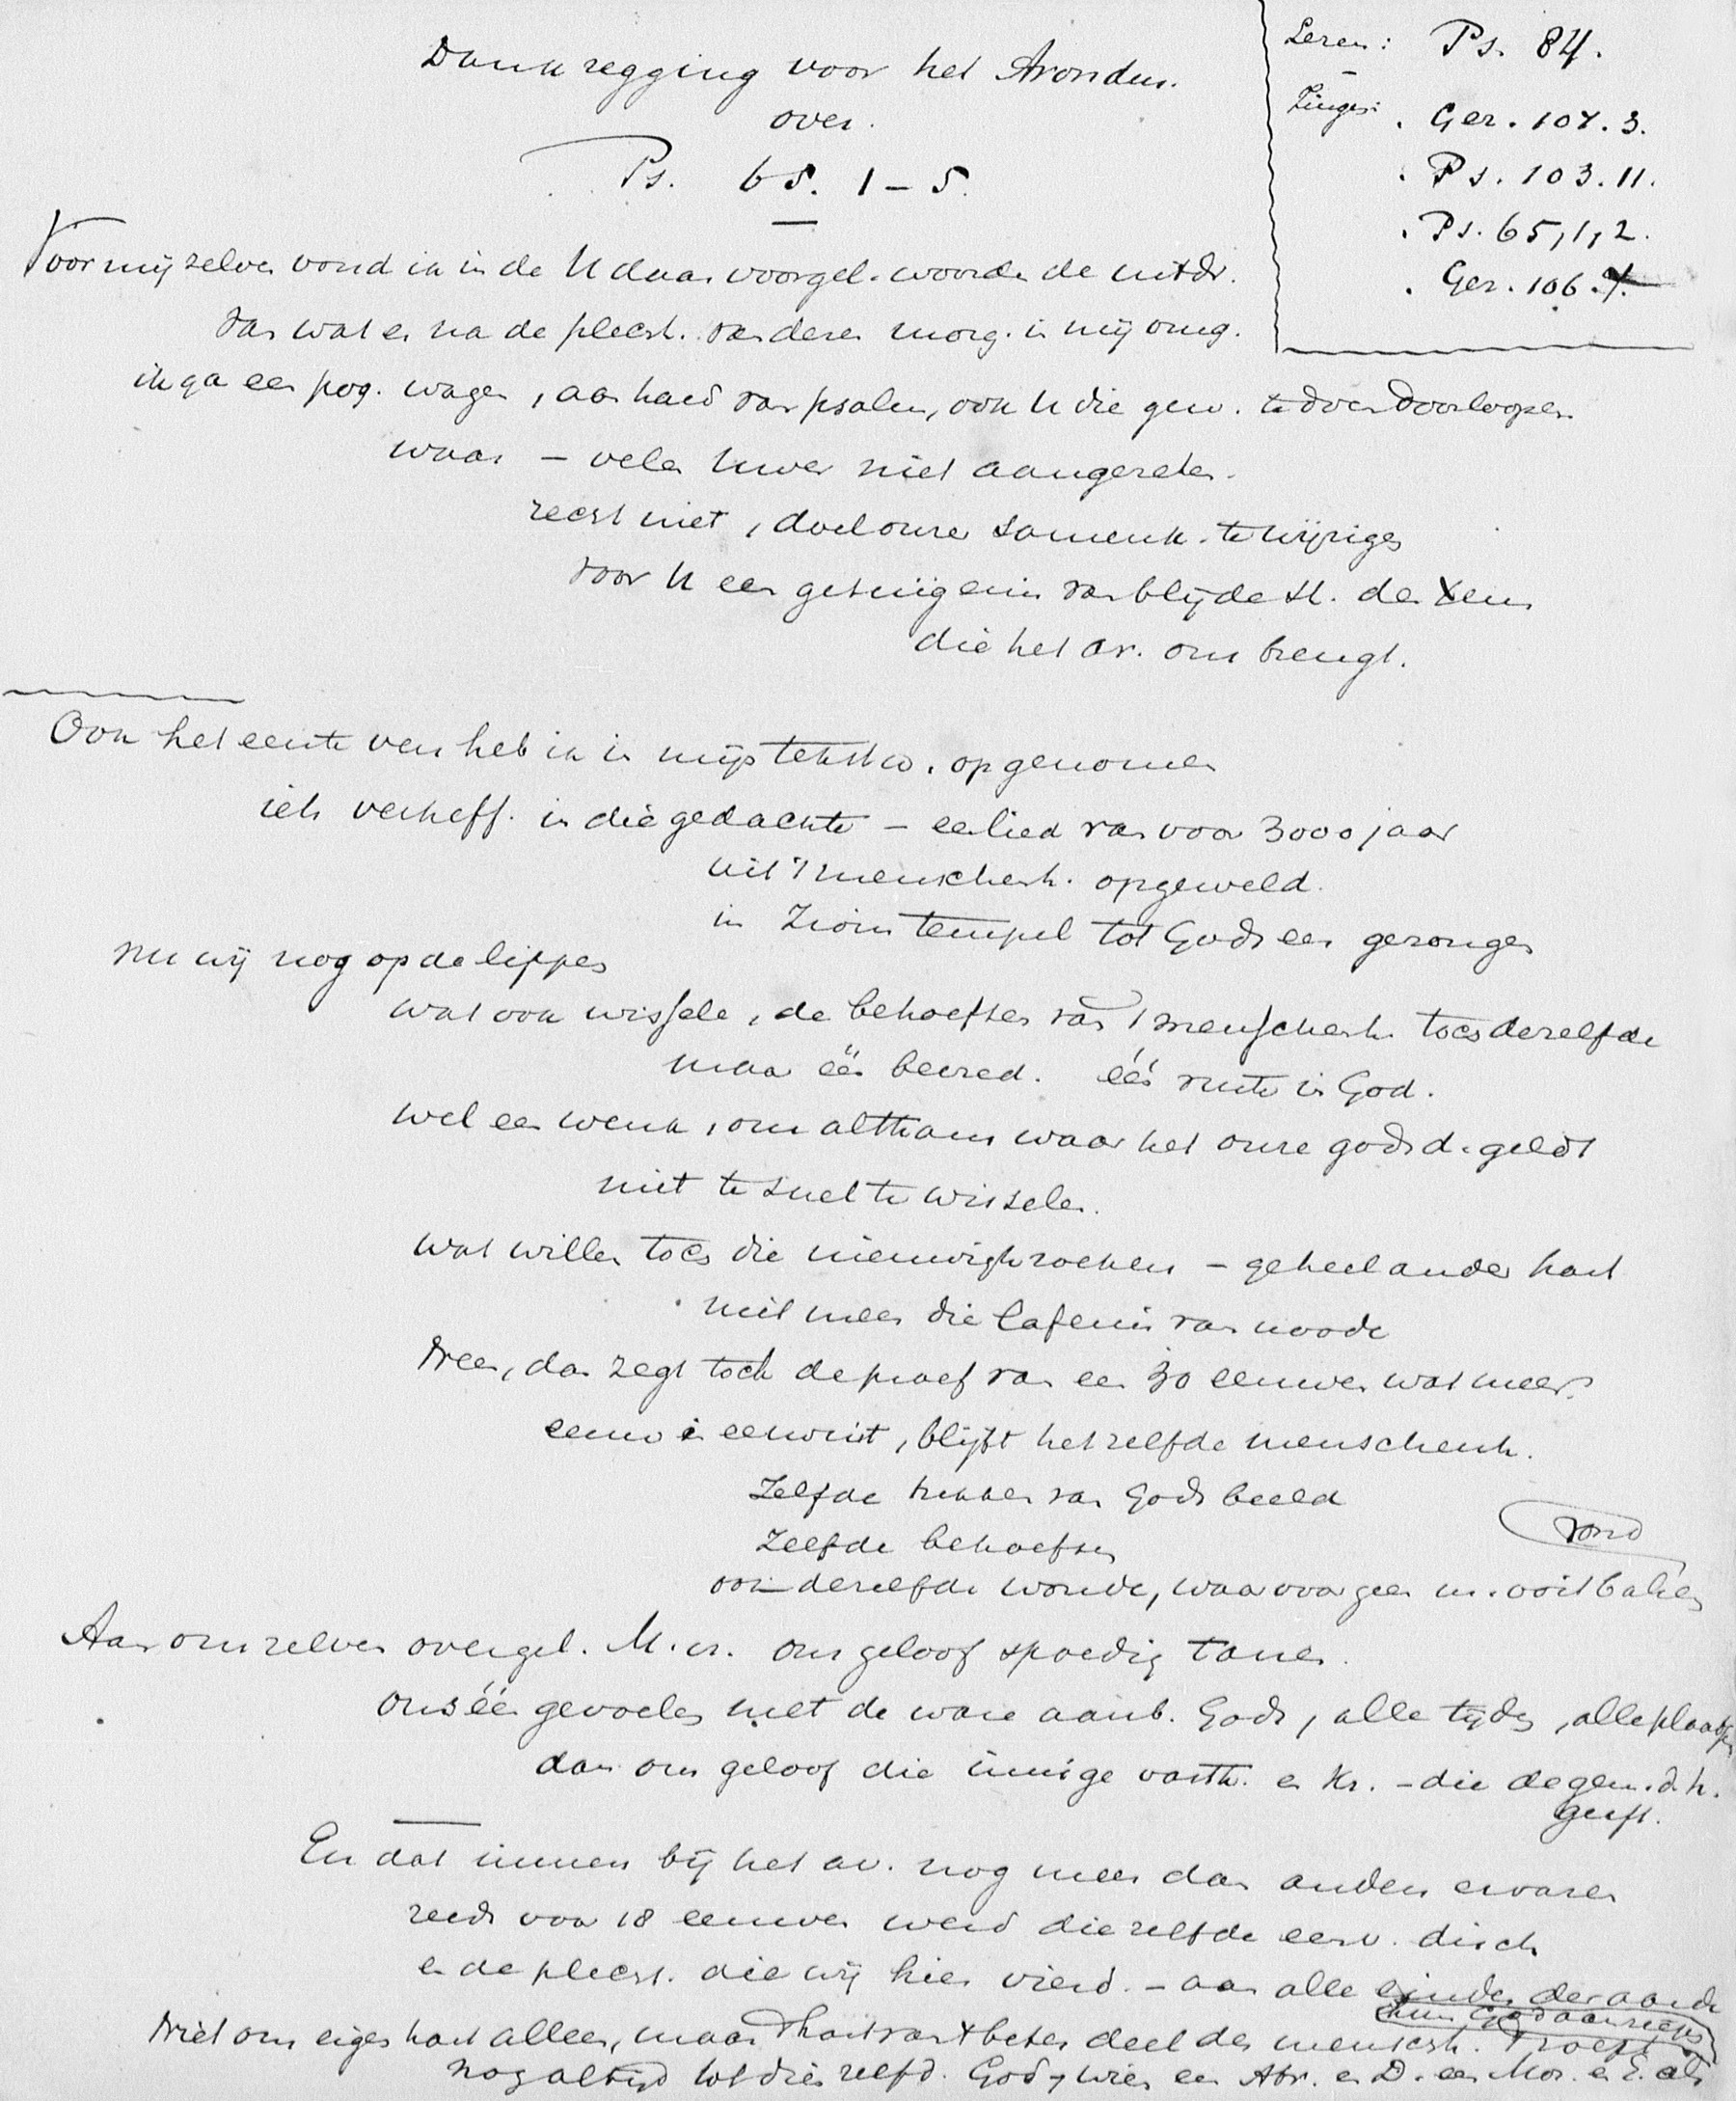 Dankzegging voor het Avondm.
over.
Ps. 65. 1-5.
Lezen: Ps. 84.
Zingen: Gez. 107. 3.
Ps. 103. 11.
Ps. 65, 1, 2.
Gez. 106.
Voor mij zelven vond ik in de U daar voorgel. woorden de uitdr.
van wat er na de plecht. van dezen morg. in mij omg.
ik ga een pog. wagen, aan hand van psalm, ook U die gew. te doen doorloopen
waar - velen Uwer niet aangezeten.
zeest niet, doel onzer samenk. te wijzigen
voor U een getuigenis van blijde st. der
die het av. ons brengt.
Ook het eerste vers heb ik in mijn tekstw. opgenomen
iets verheff. in die gedachte - een lied van voor 3000 jaar
uit 't menschenh. opgeweld.
in Zions tempel tot Gods eer gezongen
nu wij nog op de lippen
wat ook wissele, de behoeften van 't menschenh. toch dezelfde
maar één bevred. één ruste in God.
wel een wenk, om althans waar het onze godsd. geldt
niet te snel te wisselen.
wat willen toch die nieuwighzoekers - geheel ander hart
niet meer die lafenis van noode
Neen, dan zegt toch de proef van een 30 eeuwen wat meer.
eeuw in eeuw uit, blijft hetzelfde menschenh.
Zelfde trekken van Gods beeld
Zelfde behoeften
ook dezelfde wonde, waarvoor geen m. ooit balsem
vond
Aan ons zelven overgel. M. vr. ons geloof spoedig tanen.
ons één gevoelen met de ware aanb. Gods, alle tijden, alle plaatsen
dan ons geloof die innige vasth. en kr. - die de gem. d. h.
geeft.
En dat immers bij het av. nog meer dan anders ervaren
reeds voor 18 eeuwen werd diezelfde eerw. disch
en de plecht. die wij hier vierd. - aan alle einden der aarde
hun God aanriepen
Niet ons eigen hart alleen, maar 't hart van 't beter deel der mensch. roept
nog altijd tot dien zelfd. God, wien een Abr. en D. een Moz. en E. als